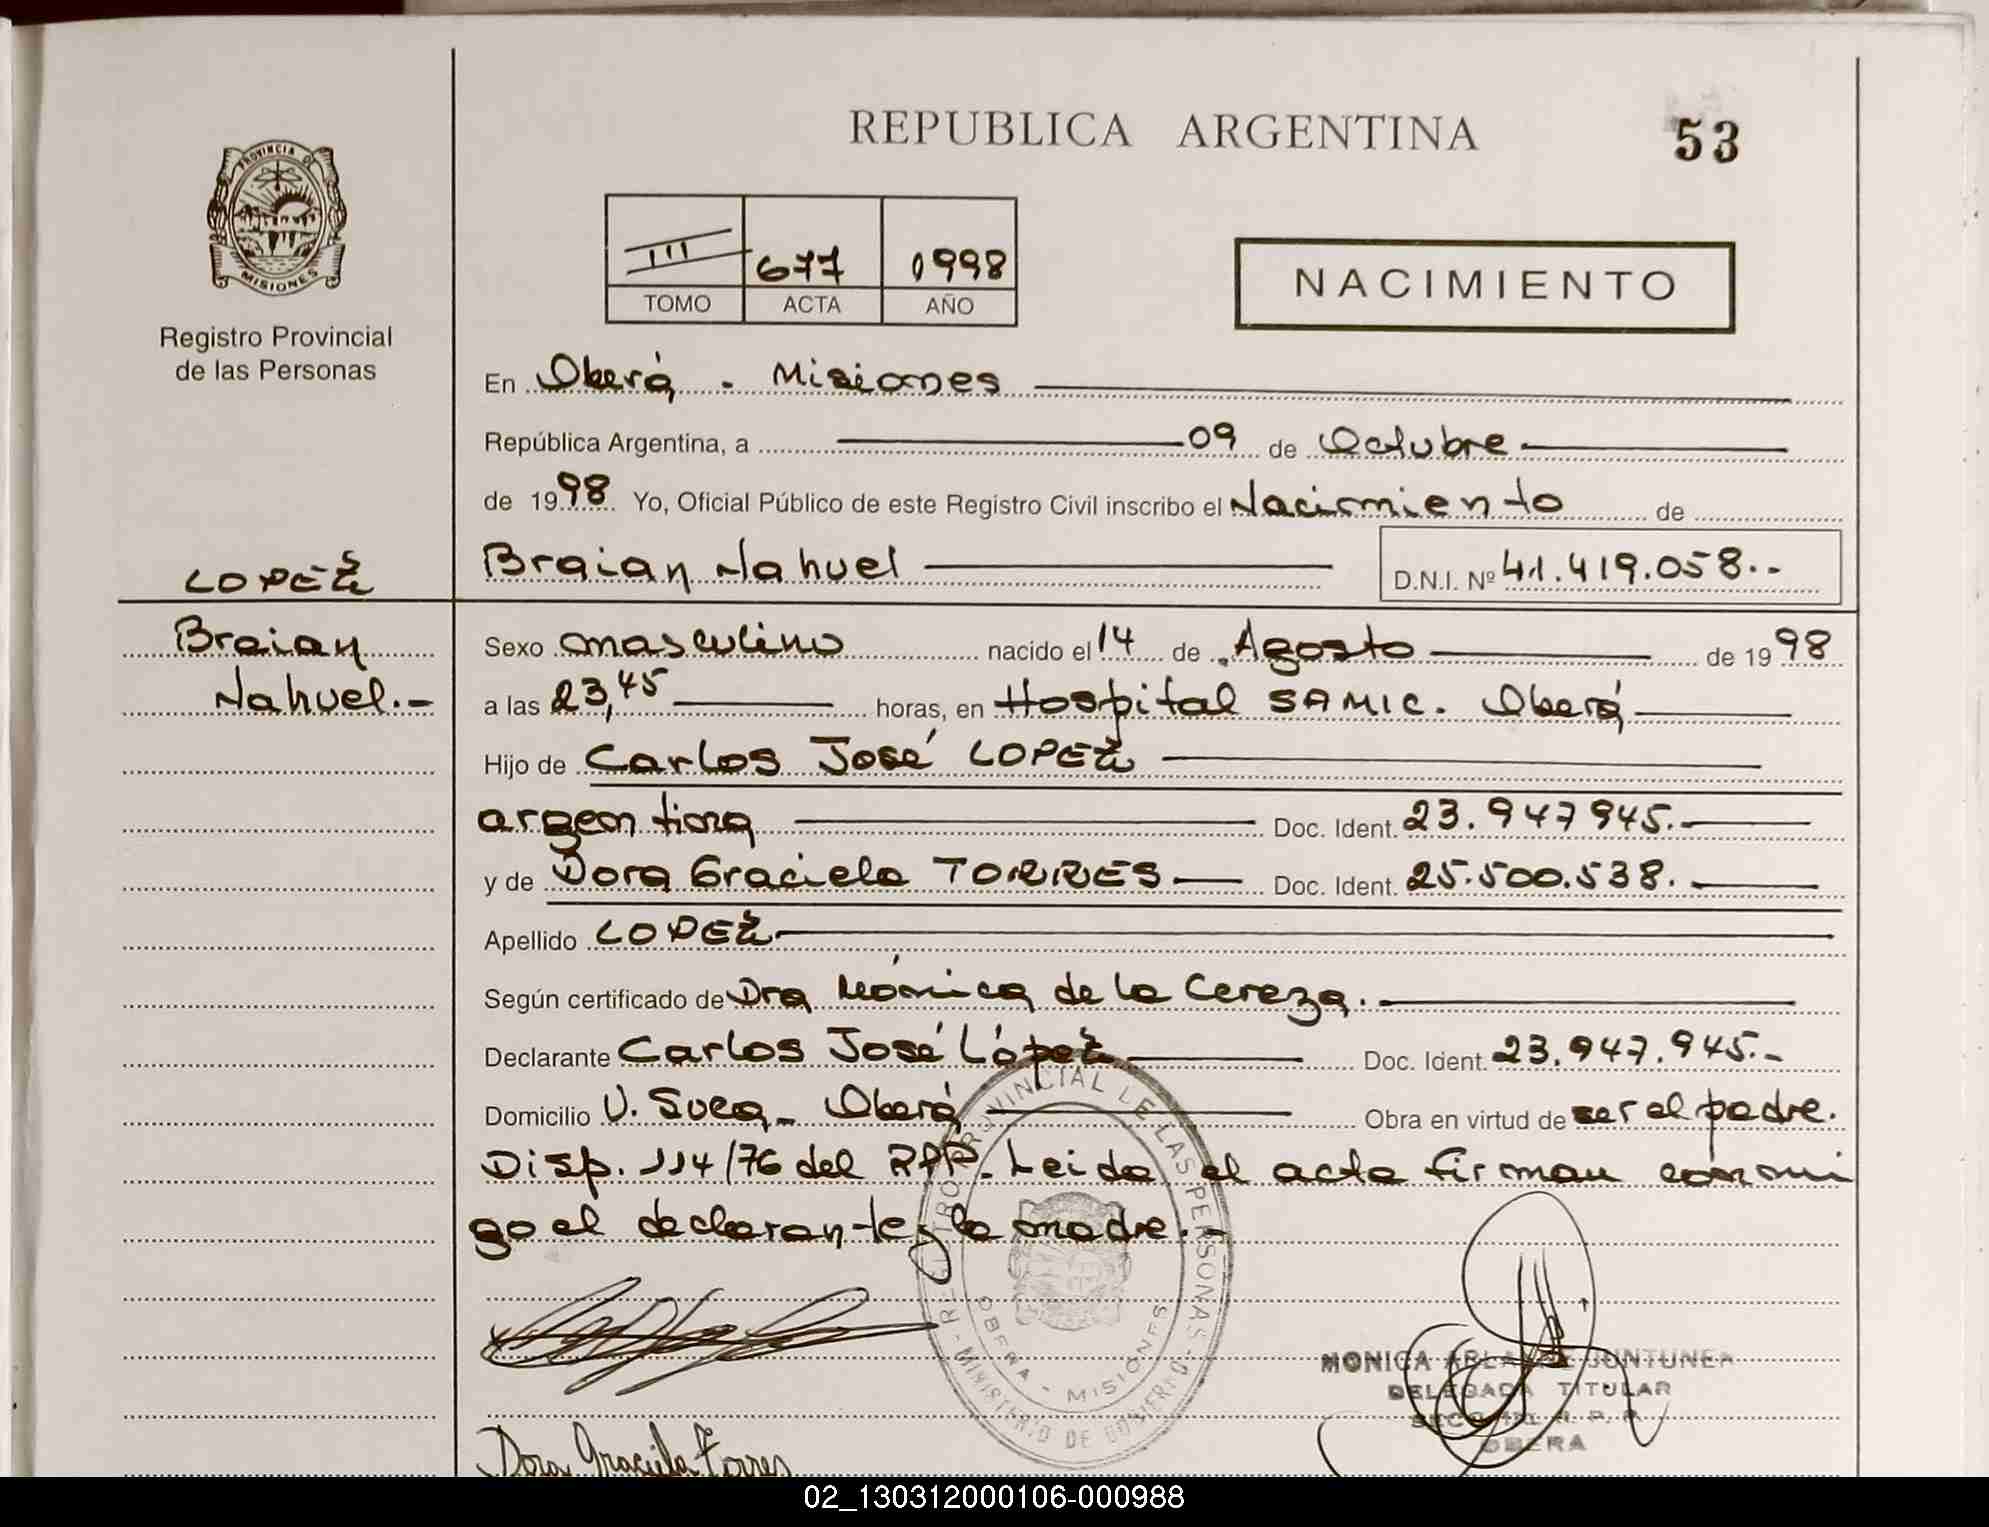 REPUBLICA ARGENTINA
53
PROVINCIA DE
MISIONES
Registro Provincial
de las Personas
III 677 1998
TOMO ACTA AÑO
NACIMIENTO
En Oberá - Misiones
República Argentina, a 09 de Octubre
de 1998 Yo, Oficial Público de este Registro Civil inscribo el Nacimiento de
LOPEZ
Braian
Nahuel.-
Braian Nahuel D.N.I. Nº 41.419.058.-
Sexo masculino nacido el 14 de Agosto de 1998
a las 23,45 horas, en Hospital SAMIC. Oberá
Hijo de Carlos José LOPEZ
argentina Doc. Ident. 23.947945.
y de Dora Graciela TORRES Doc. Ident. 25.500.538.
Apellido LOPEZ
Según certificado de Dra Mónica de la Cereza.
Declarante Carlos José López Doc. Ident. 23.947.945.-
Domicilio V. Sueca - Oberá Obra en virtud de ser el padre.
Disp. 114/76 del RPP. Leida el acta firman conmi
go el declarante y la madre.-
REGISTRO PROVINCIAL DE LAS PERSONAS - MINISTERIO DE GOBIERNO
OBERA - MISIONES
MONICA
DELEGADA TITULAR
R. P. P.
OBERA
Dora Graciela Torres
02_130312000106-000988